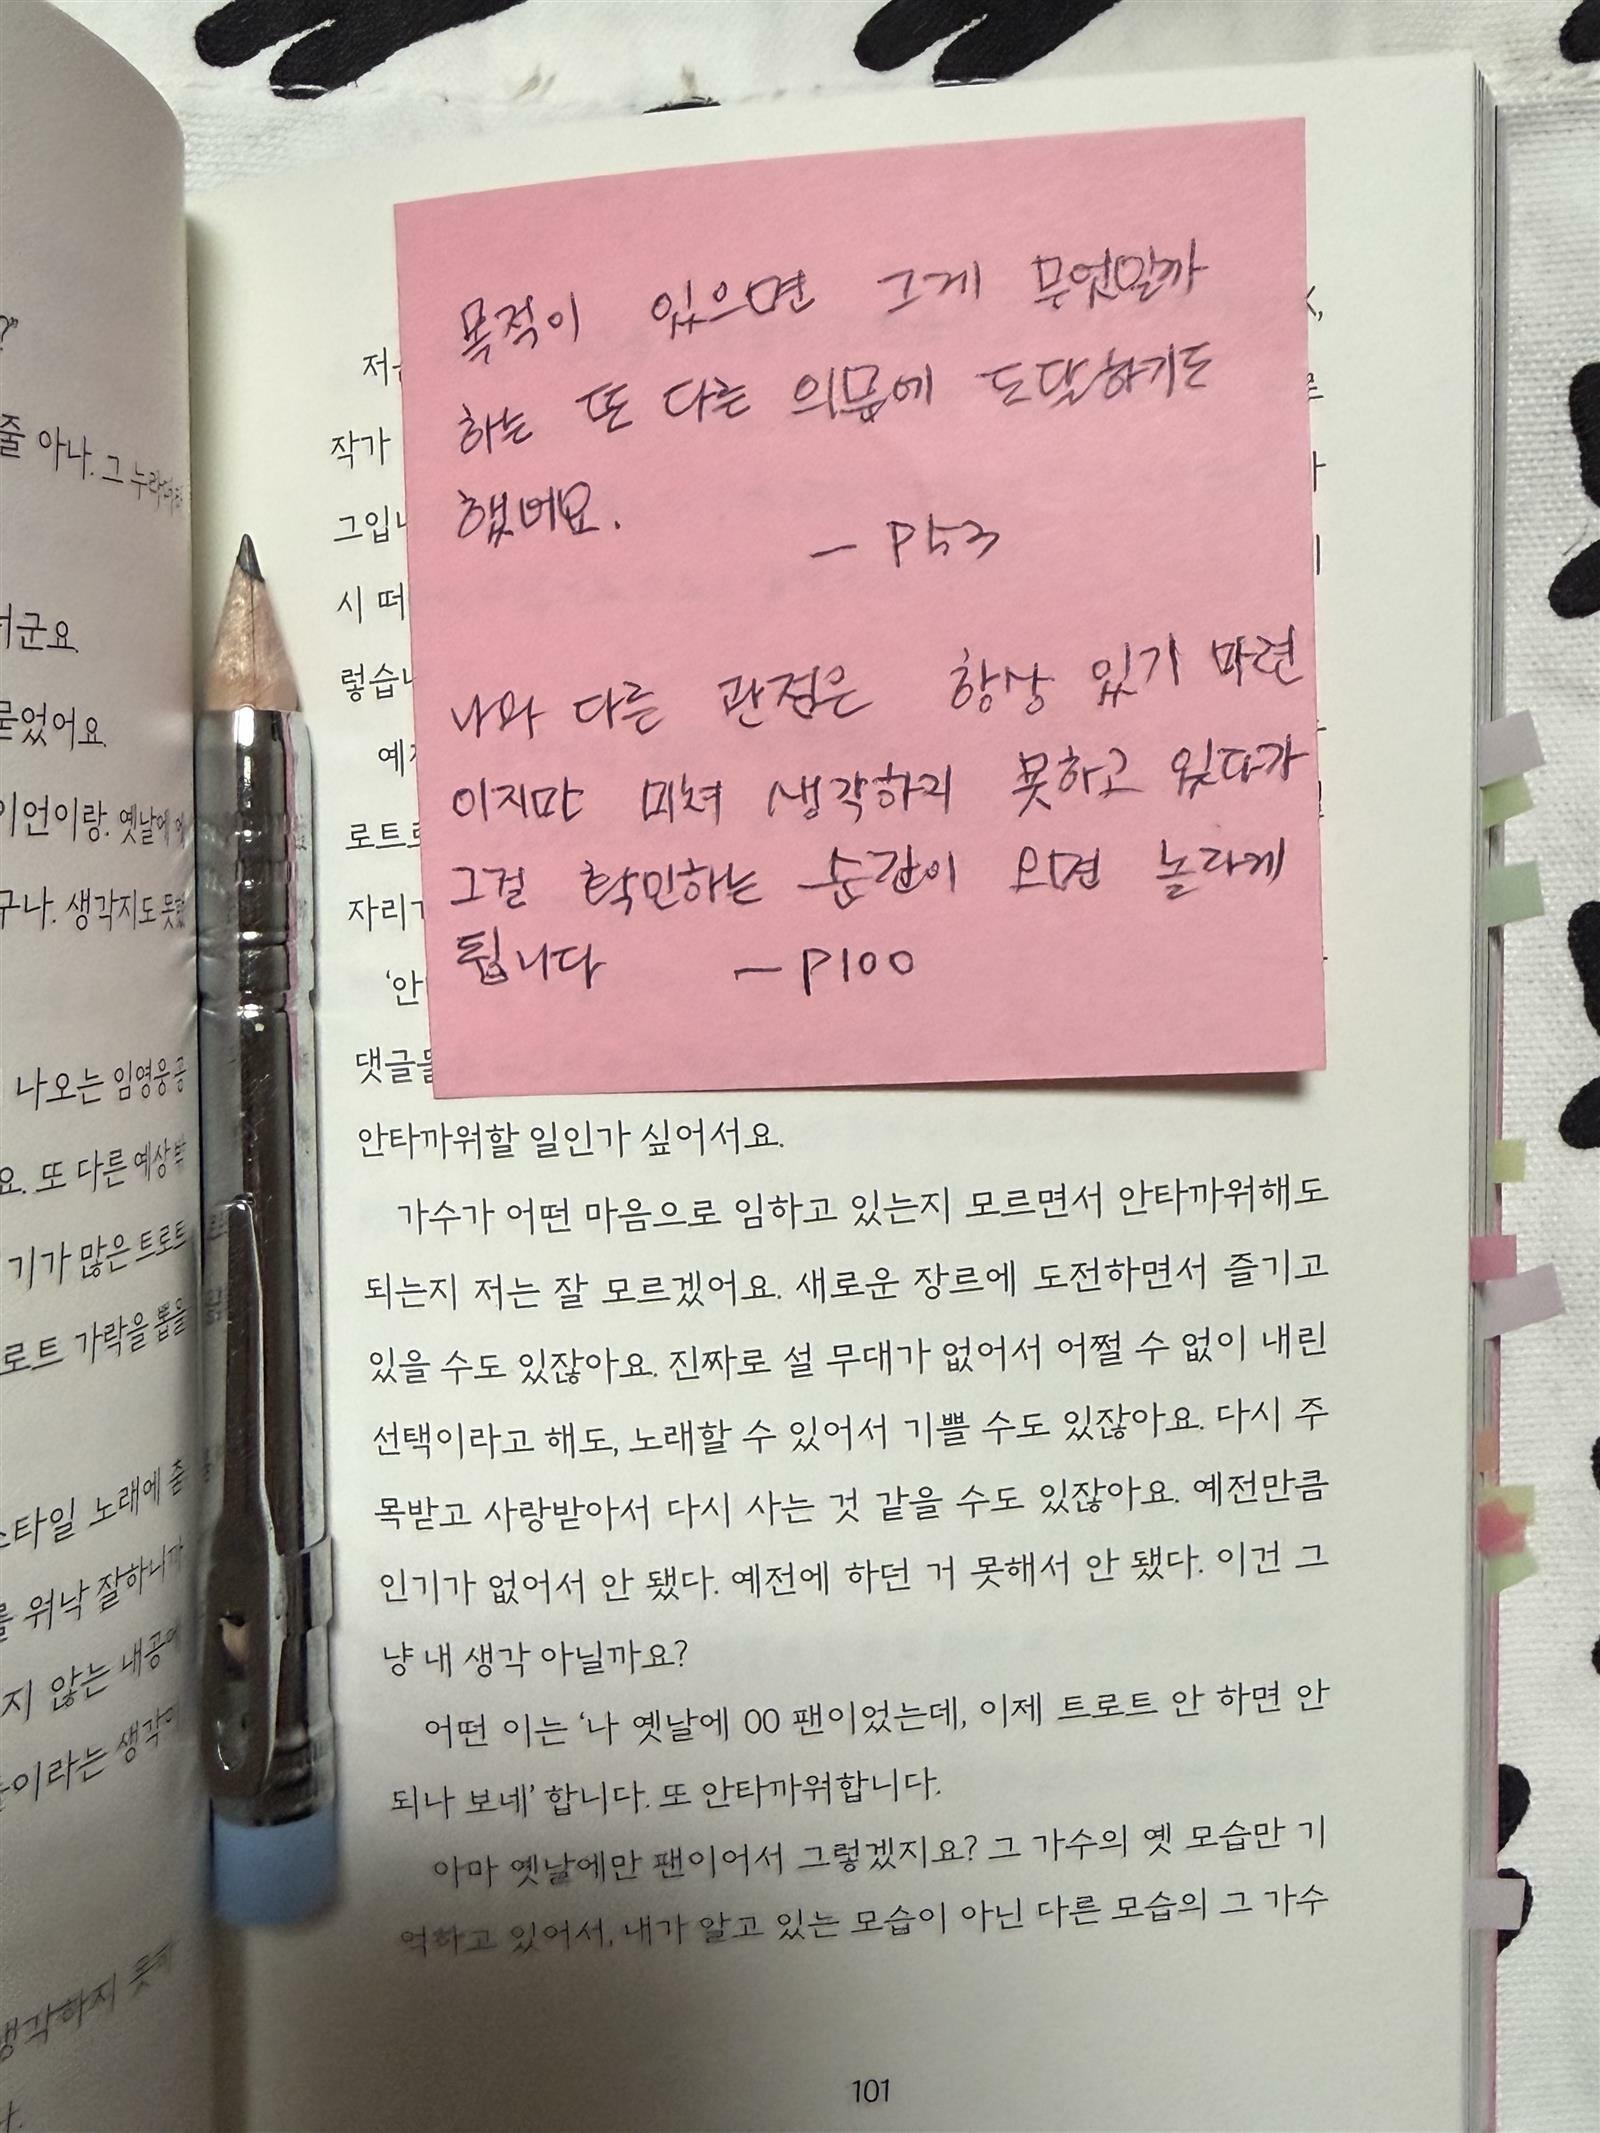 ?”
줄 아나. 그
더군요.
묻었어요.
이언이랑. 옛날에
구나. 생각지도 못했
나오는 임영웅 공
요. 또 다른 예상 밖
기가 많은 트로트
로트 가락을 뽑을
스타일 노래에
를 워낙 잘하니까
지 않는 내공에
이라는 생각이
생각하지 못
목적이 있으면 그게 무엇일까
하는 또 다른 의문에 도달하기도
했네요.
— P53
나와 다른 관점은 항상 있기 마련
이지만 미쳐 생각하지 못하고 있다가
그걸 확인하는 순간이 오면 놀라게
됩니다 — P100
저는
작가
그입니
시 떠
렇습니
예
로트로
자리
‘안
댓글들
안타까워할 일인가 싶어서요.
가수가 어떤 마음으로 임하고 있는지 모르면서 안타까워해도
되는지 저는 잘 모르겠어요. 새로운 장르에 도전하면서 즐기고
있을 수도 있잖아요. 진짜로 설 무대가 없어서 어쩔 수 없이 내린
선택이라고 해도, 노래할 수 있어서 기쁠 수도 있잖아요. 다시 주
목받고 사랑받아서 다시 사는 것 같을 수도 있잖아요. 예전만큼
인기가 없어서 안 됐다. 예전에 하던 거 못해서 안 됐다. 이건 그
냥 내 생각 아닐까요?
어떤 이는 ‘나 옛날에 00 팬이었는데, 이제 트로트 안 하면 안
되나 보네’ 합니다. 또 안타까워합니다.
아마 옛날에만 팬이어서 그렇겠지요? 그 가수의 옛 모습만 기
억하고 있어서, 내가 알고 있는 모습이 아닌 다른 모습의 그 가수
101